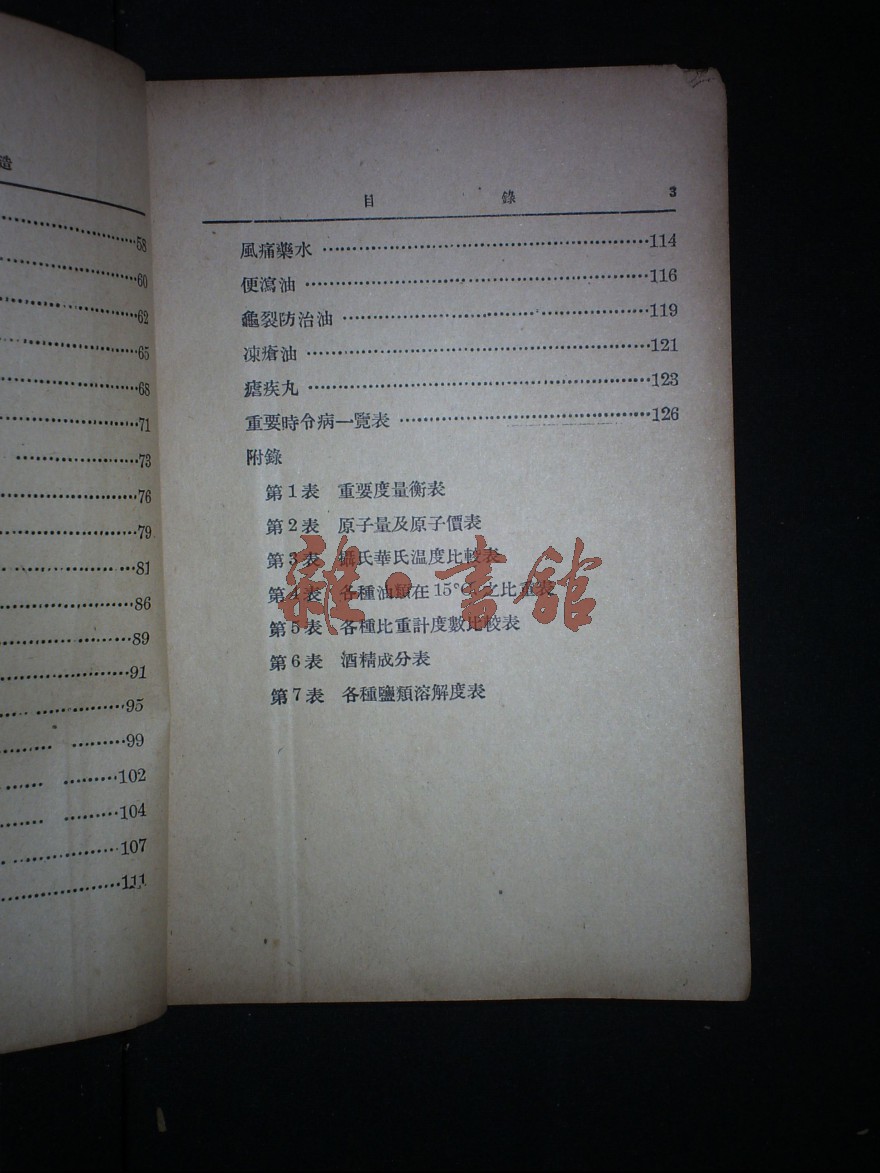 造
58
60
62
65
68
71
73
76
79
81
86
89
91
95
99
102
104
107
111
目 錄 3
風痛藥水 114
便瀉油 116
龜裂防治油 119
凍瘡油 121
瘧疾丸 123
重要時令病一覽表 126
附錄
第1表 重要度量衡表
第2表 原子量及原子價表
第3表 攝氏華氏溫度比較表
第4表 各種油類在15°C.之比重表
第5表 各種比重計度數比較表
第6表 酒精成分表
第7表 各種鹽類溶解度表
雜·書館